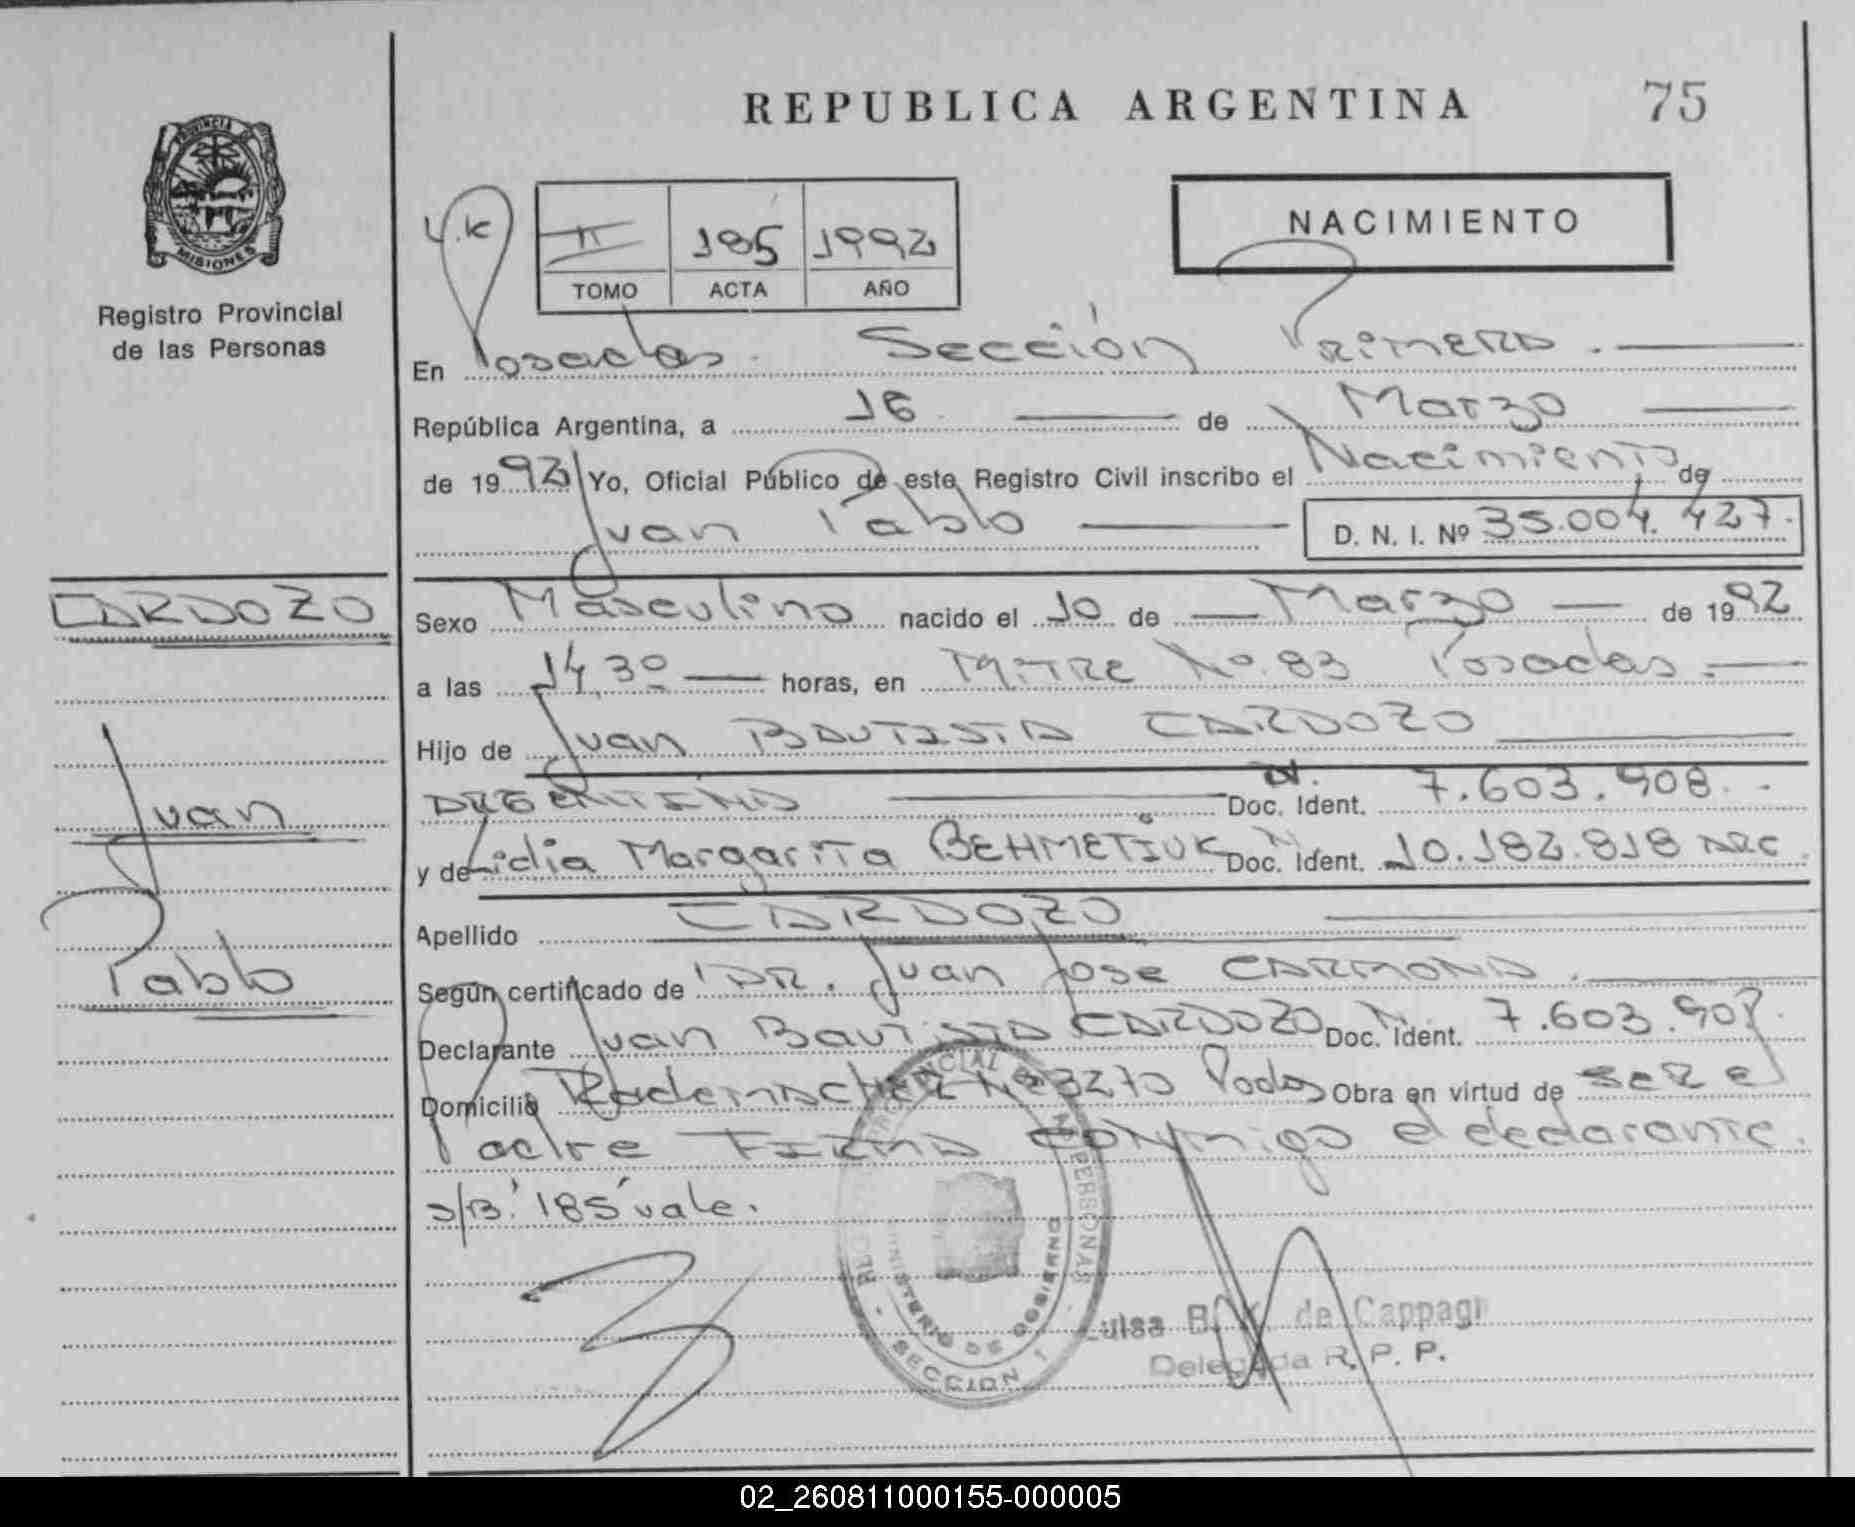 REPUBLICA ARGENTINA 75
PROVINCIA DE
MISIONES
Registro Provincial
de las Personas
NACIMIENTO
II 185 1992
TOMO ACTA AÑO
En Posadas. Sección Primera.
República Argentina, a 16 de Marzo
de 1992 Yo, Oficial Público de este Registro Civil inscribo el Nacimiento de
Juan Pablo D. N. I. Nº 35.004.427.
CARDOZO
Juan
Pablo
Sexo Masculino nacido el 10 de Marzo de 1992
a las 14,30 horas, en Mitre No. 83 Posadas.
Hijo de Juan BAUTISTA CARDOZO
ARGENTINO Doc. Ident. 7.603.908.
y de Lidia Margarita BEHMETIUK Doc. Ident. 10.182.818 ARG.
Apellido CARDOZO
Según certificado de DR. Juan Jose CARMONA.
Declarante Juan Bautista CARDOZO Doc. Ident. 7.603.908.
Domicilio Rademacher Nº 3270 Pdas Obra en virtud de ser el
Padre FIRMA conmigo el declarante.
s/B. "185" vale.
MINISTERIO DE GOBIERNO
SECCION 1
Luisa B. de Cappagi
Delegada R. P. P.
02_260811000155-000005